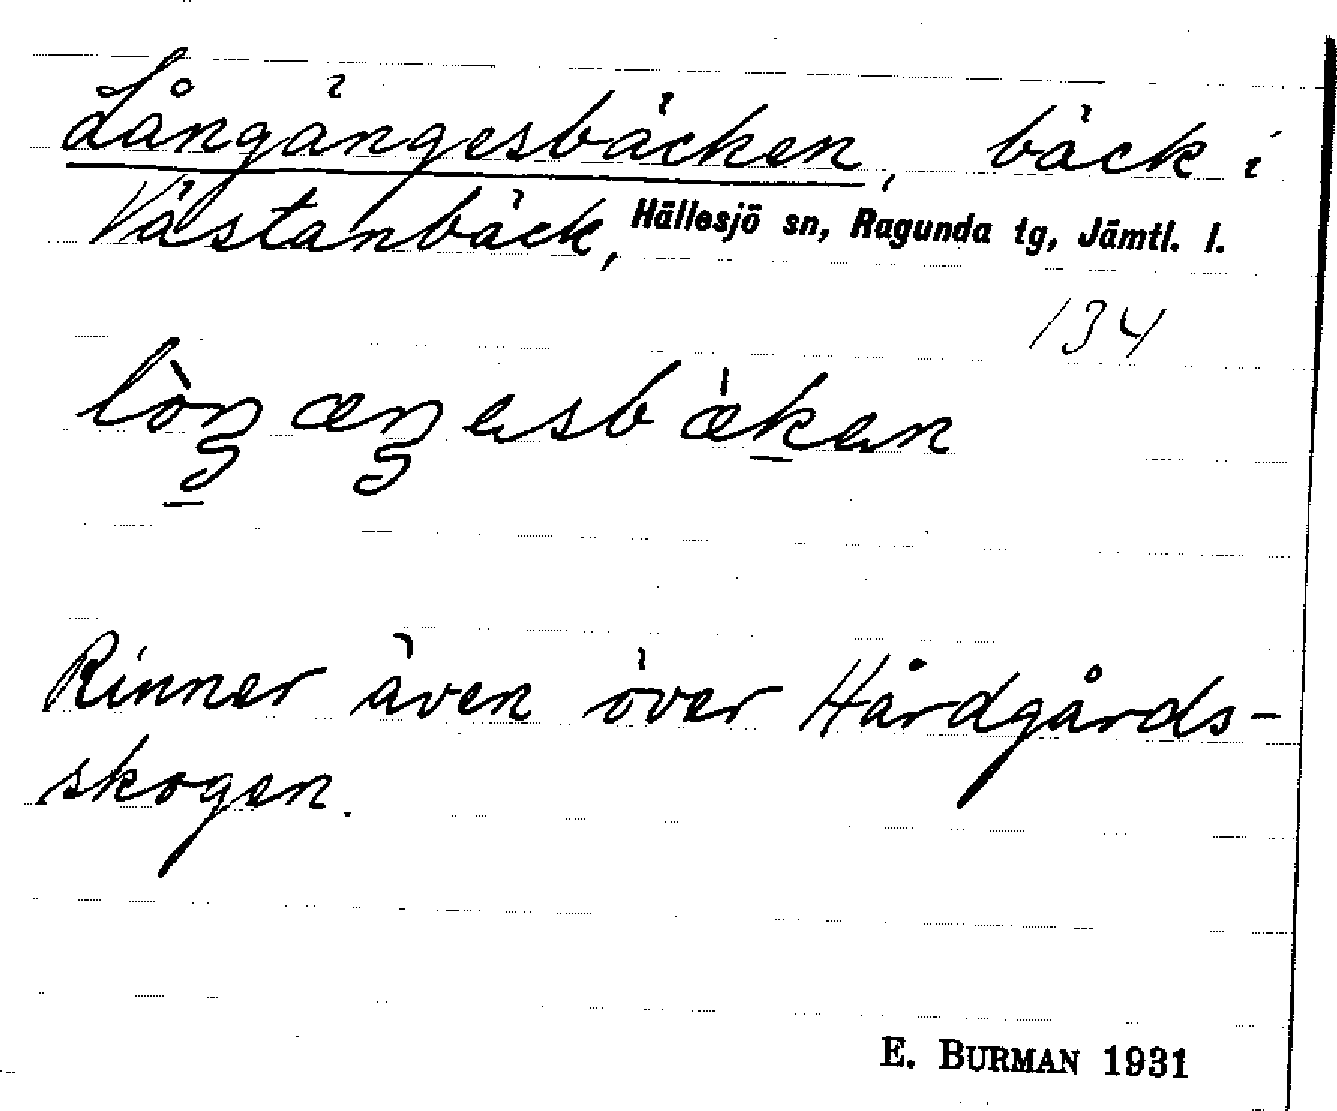 Långängesbäcken, bäck i
Västanbäck, Hällesjö sn, Ragunda tg, Jämtl. l.
134
lòŋæŋesbæken
Rinner även över Hårdgårds-
skogen.
E. BURMAN 1931